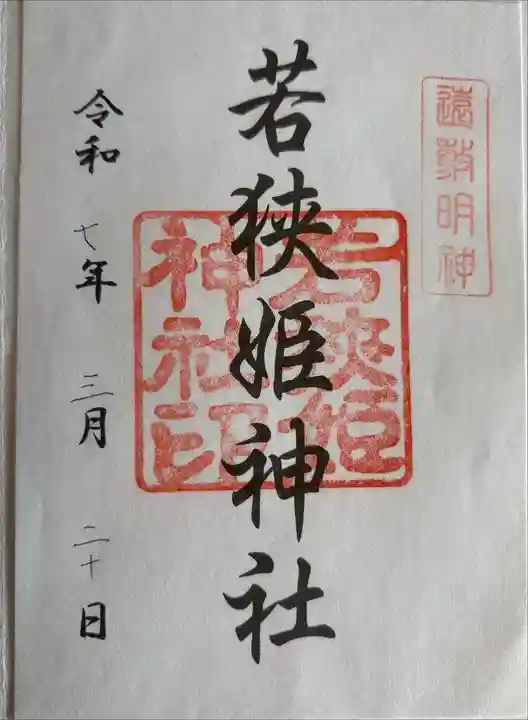 遠敷明神
若狭姫神社
若狭姫
神社印
令和七年三月二十日